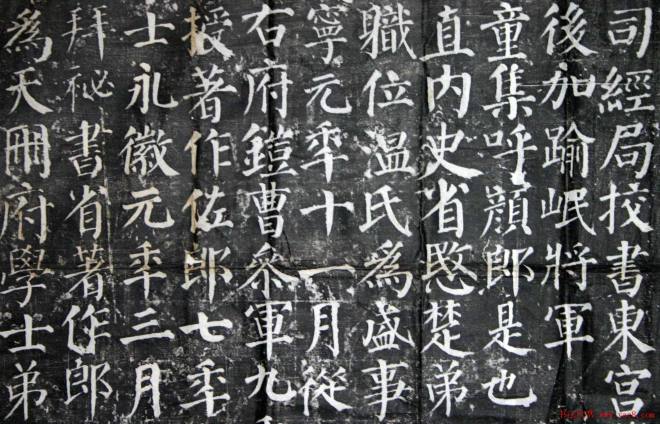 司經局挍書東宮
後加踰岷將軍
童集呼顏郎是也
直内史省愍楚弟
職位温氏為盛事
寧元年十一月從
右府鎧曹叅軍九
授著作佐郎七年
士永徽元年三月
拜祕書省著作郎
為天冊府學士弟